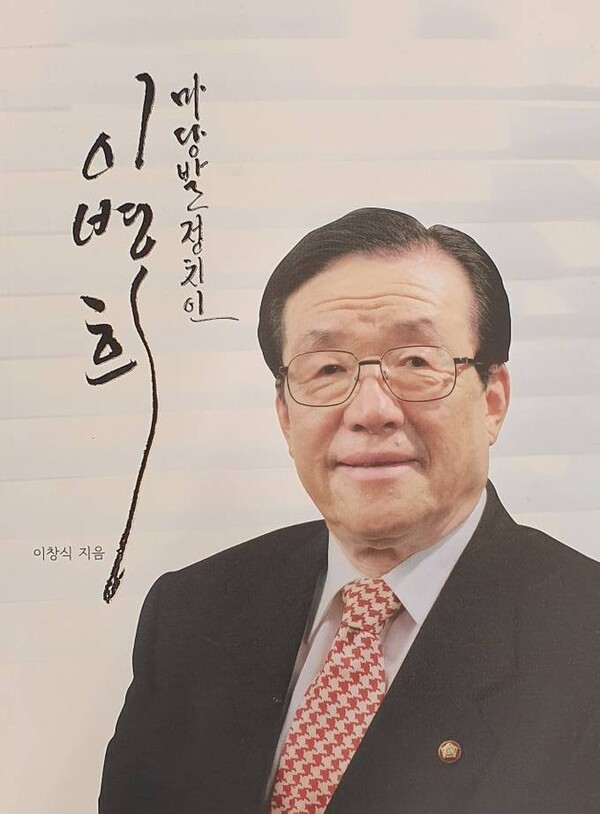 마당발 정치인
이병희
이창식 지음